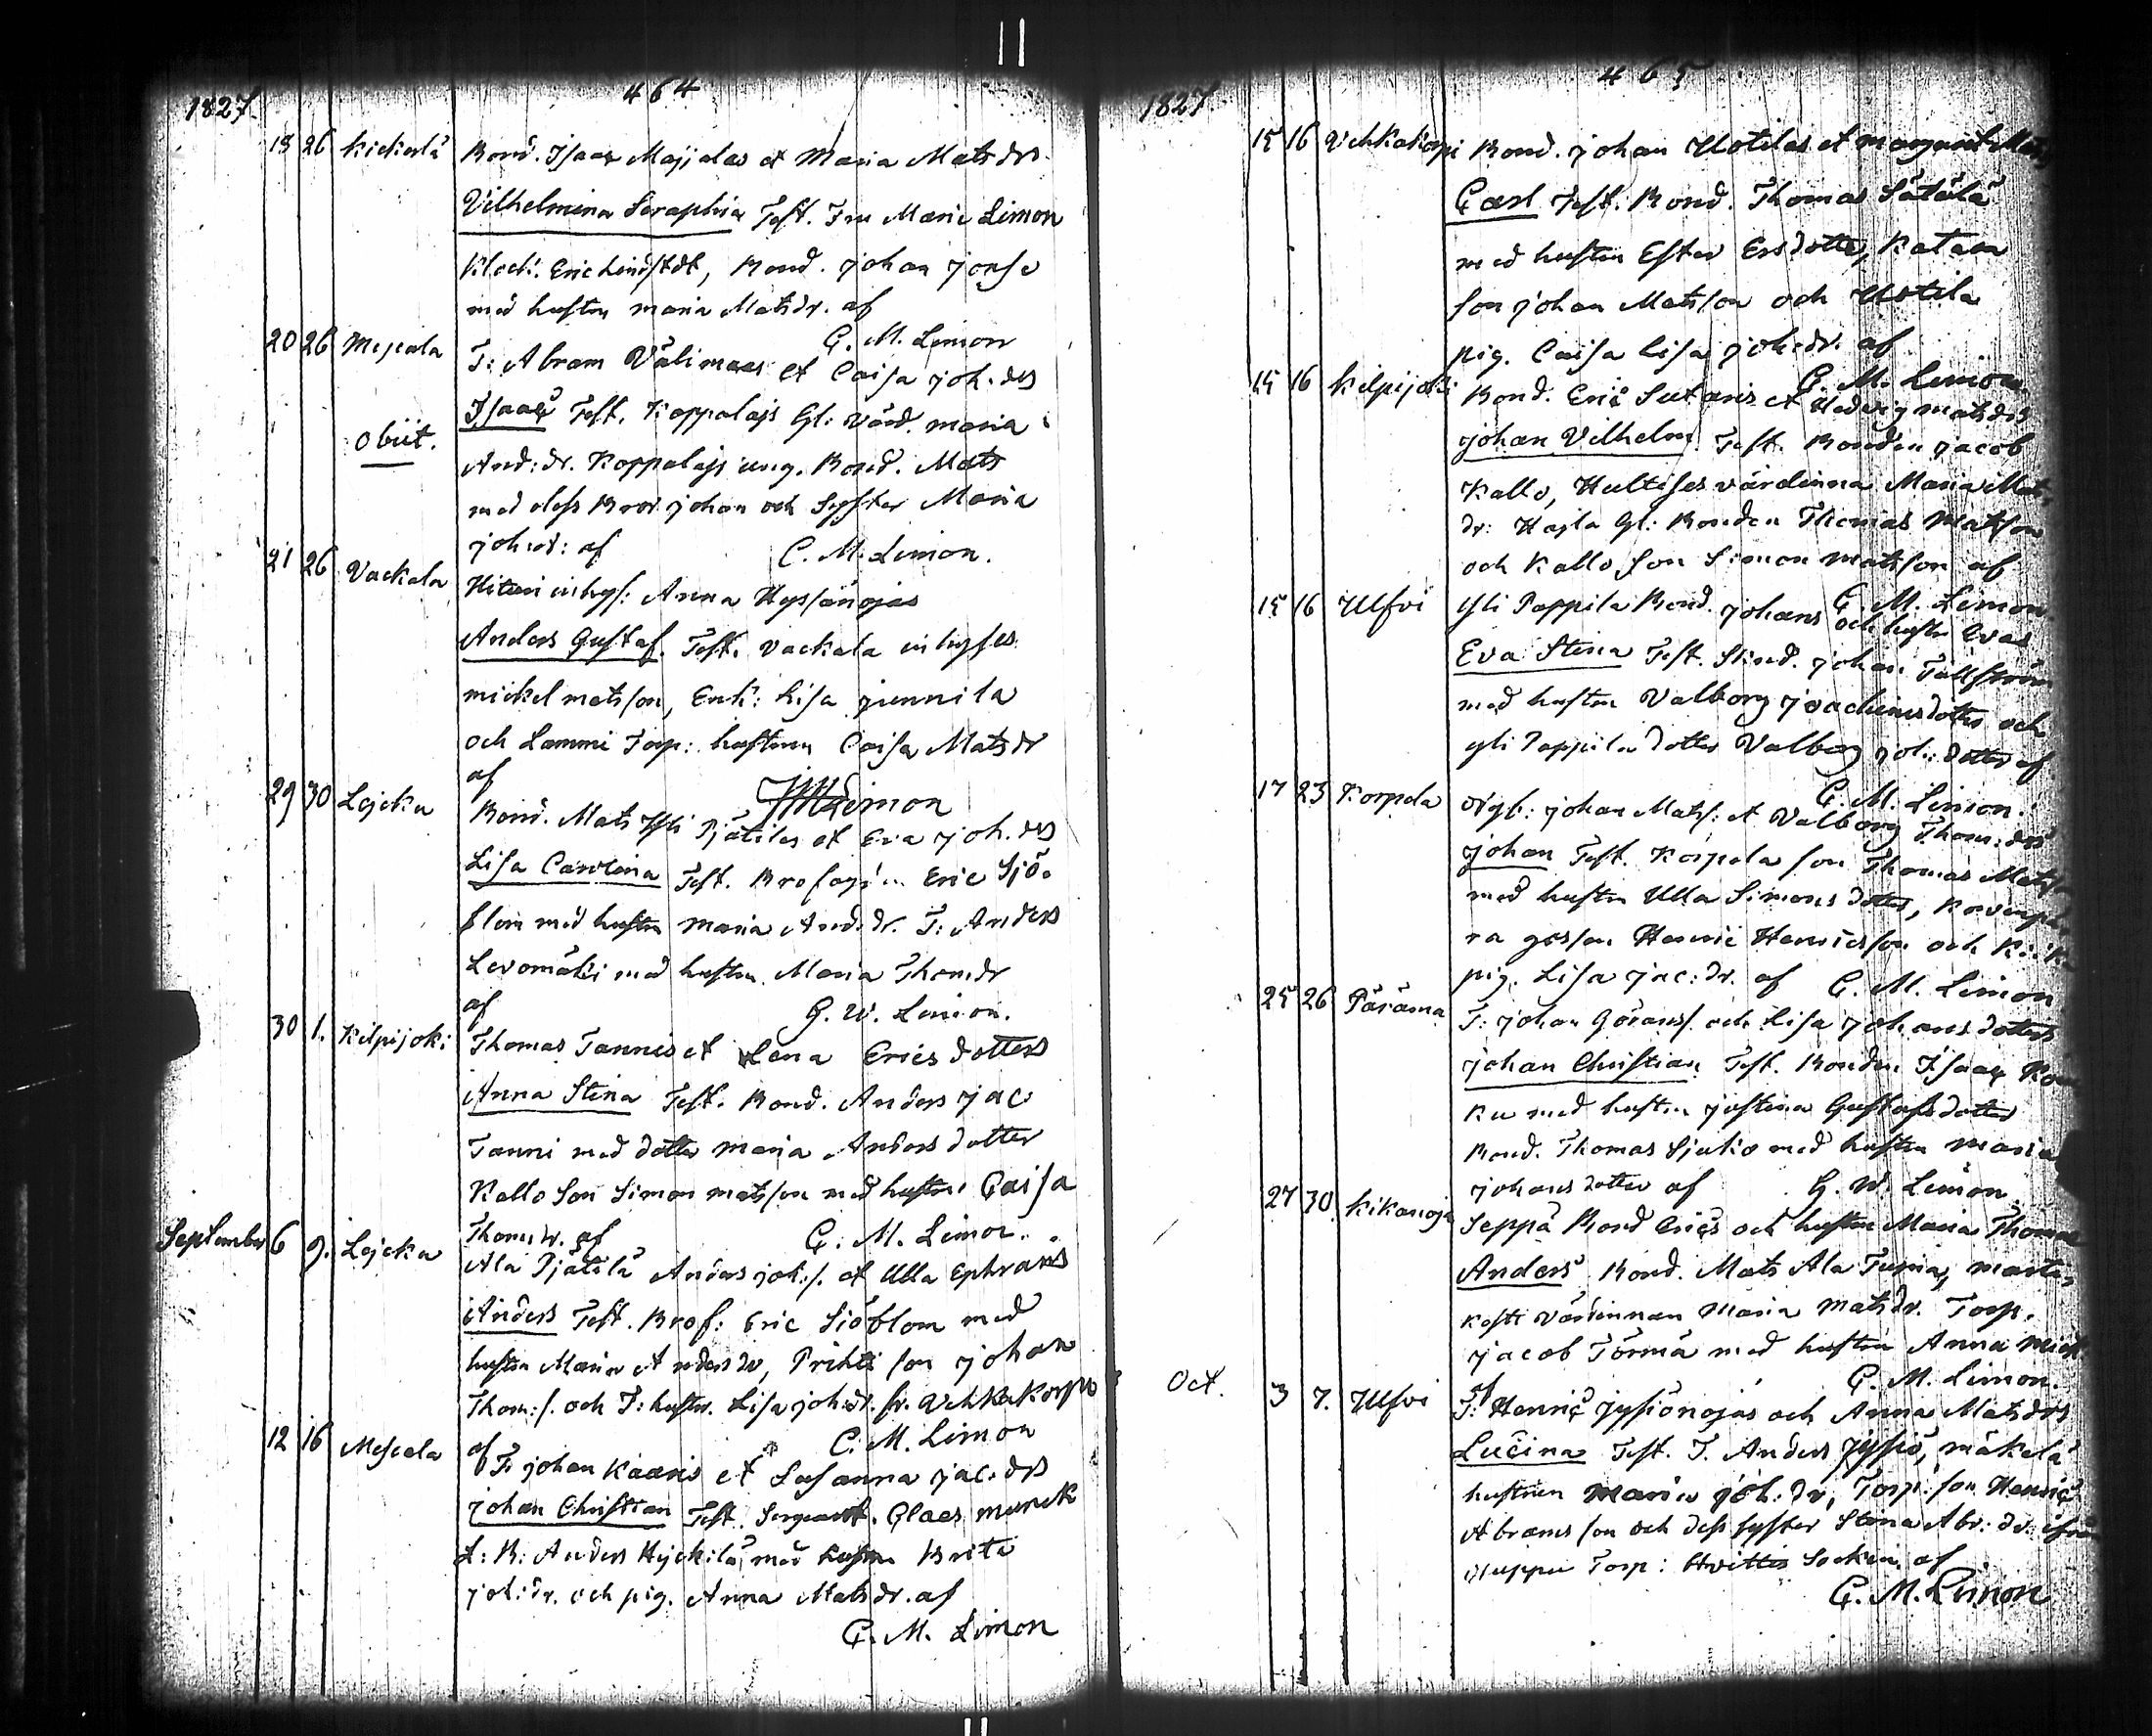 464
1827.
18 26 Kiekelä Bond. Isaax Majjalas et Maria Mats drs
Vilhelmina Seraphia Test. Fru Marie Limon
Klock. Eric Lindstedt, Bond. Johan
med hustru maria Matsdr. af
G. M. Limon
20 26 Mescala T: Abram Välimaas et Caisa joh. drs
Isaac Test. Koppalajs Gl: Värd. maria
obiit.
And: dr. Koppalajs ung. Bond. Mats
med dess Bror johan och Syster Maria
joh: dr: af C. M. Limon.
21 26 Vackala Hiteni inhys: Anna Hyssänojas
Anders Gustaf. Test. Vackala inhyses
mickel matsson, Enk: Lisa junnila
och Lammi Torp: hustrun Caisa Matsdr
af Limon
29 30 Lojcku Bond. Mats Yli Pjätilas et Eva joh. drs
Lisa Carolina Test. Eric Sjö-
blom med hustru maria And: dr. T: Anders
Levomäki med hustru Maria Thomdr
af G. W. Limon.
30 1. Kilpijoki Thomas Tannis et Lena Erics dotters
Anna Stina Test. Bond. Anders jac
Tanni med dotter maria Anders dotter
Kallo Son Simon matsson med hustru Caisa
Thomdr. af G. M. Limon.
September 6 9. Lojcku Ala Pjätilä Anders joh: s. et Ulla Ephraims
Anders Test. Brof: Eric Siöblom med
hustru Maria Anders dr, Prihti son johan
Thom: s. och T: hustr. Lisa joh: dr. fr. Vehkakorpi
af C. M. Limon
12 16 Mescala T: johan Kaaris et Susanna jac. drs
johan Christian Test. Sergeant. Claes munck
L: B: Anders Hyckilä, med hustru Brita
joh: dr. och pig. Anna Matsdr. af
G. M. Limon
465
1827
15 16 Vehkakorpi Bond. johan Uotilas et margaret
Carl Test. Bond. Thomas Sätälä
med hustru Ester Ersdotter, Katava
son johan Matsson och Uotila
pig. Caisa Lisa joh: dr. af
G. M. Limon.
15 16 Kilpijoki Bond. Eric Sutaris et Hedvig matsdrs
johan Vilhelm. Test. Bonden jacob
Kallo, Hultises värdinna Maria Mats
dr: Hajla Gl: Bonden Thomas Matsson
och Kallo son Simon Matsson af
G. M. Limon
15 16 Ulfvi Yli Pappila Bond. johans och hustru Evas
Eva Stina Test. Skred. johan Tällström
med hustru Valborg joachimsdotter och
yli Pappila dotter Valborg joh: dotter af
G. M. Limon.
17 23 Korpela johan Mats: et Valborg Thom: drs
johan Test. Korpela son Thomas
med hustru Ulla Simons dotter,
ra gossen Henric Henricsson och
pig. Lisa jac: dr. af C. M. Limon
25 26 Pärämä T: johan Göranss. och Lisa johans dotters
johan Christian Test. Bonden Isaax
ku med hustru justina Gustafsdotter
Bond. Thomas Sjuko med hustru maria
johans dotter af G. W. Limon.
27 30 Kikanoja Seppä Bond Erics och hustru Maria
Anders Bond. Mats Ala Tuma,
Värdinnan Maria matsdr. Torp.
jacob Törmä med hustru Anna
af G. M. Limon.
Oct. 3 7. Ulfvi T: Henric jysiönojas och Anna Matsdrs
Lucina Test. T. Anders jysiö, mäkelä
hustrun Maria joh: dr, Torp: son Henric
Abramsson och dess syster Stina Abr: dr.
Torp: Hvittis Socken af
G. M. Limon